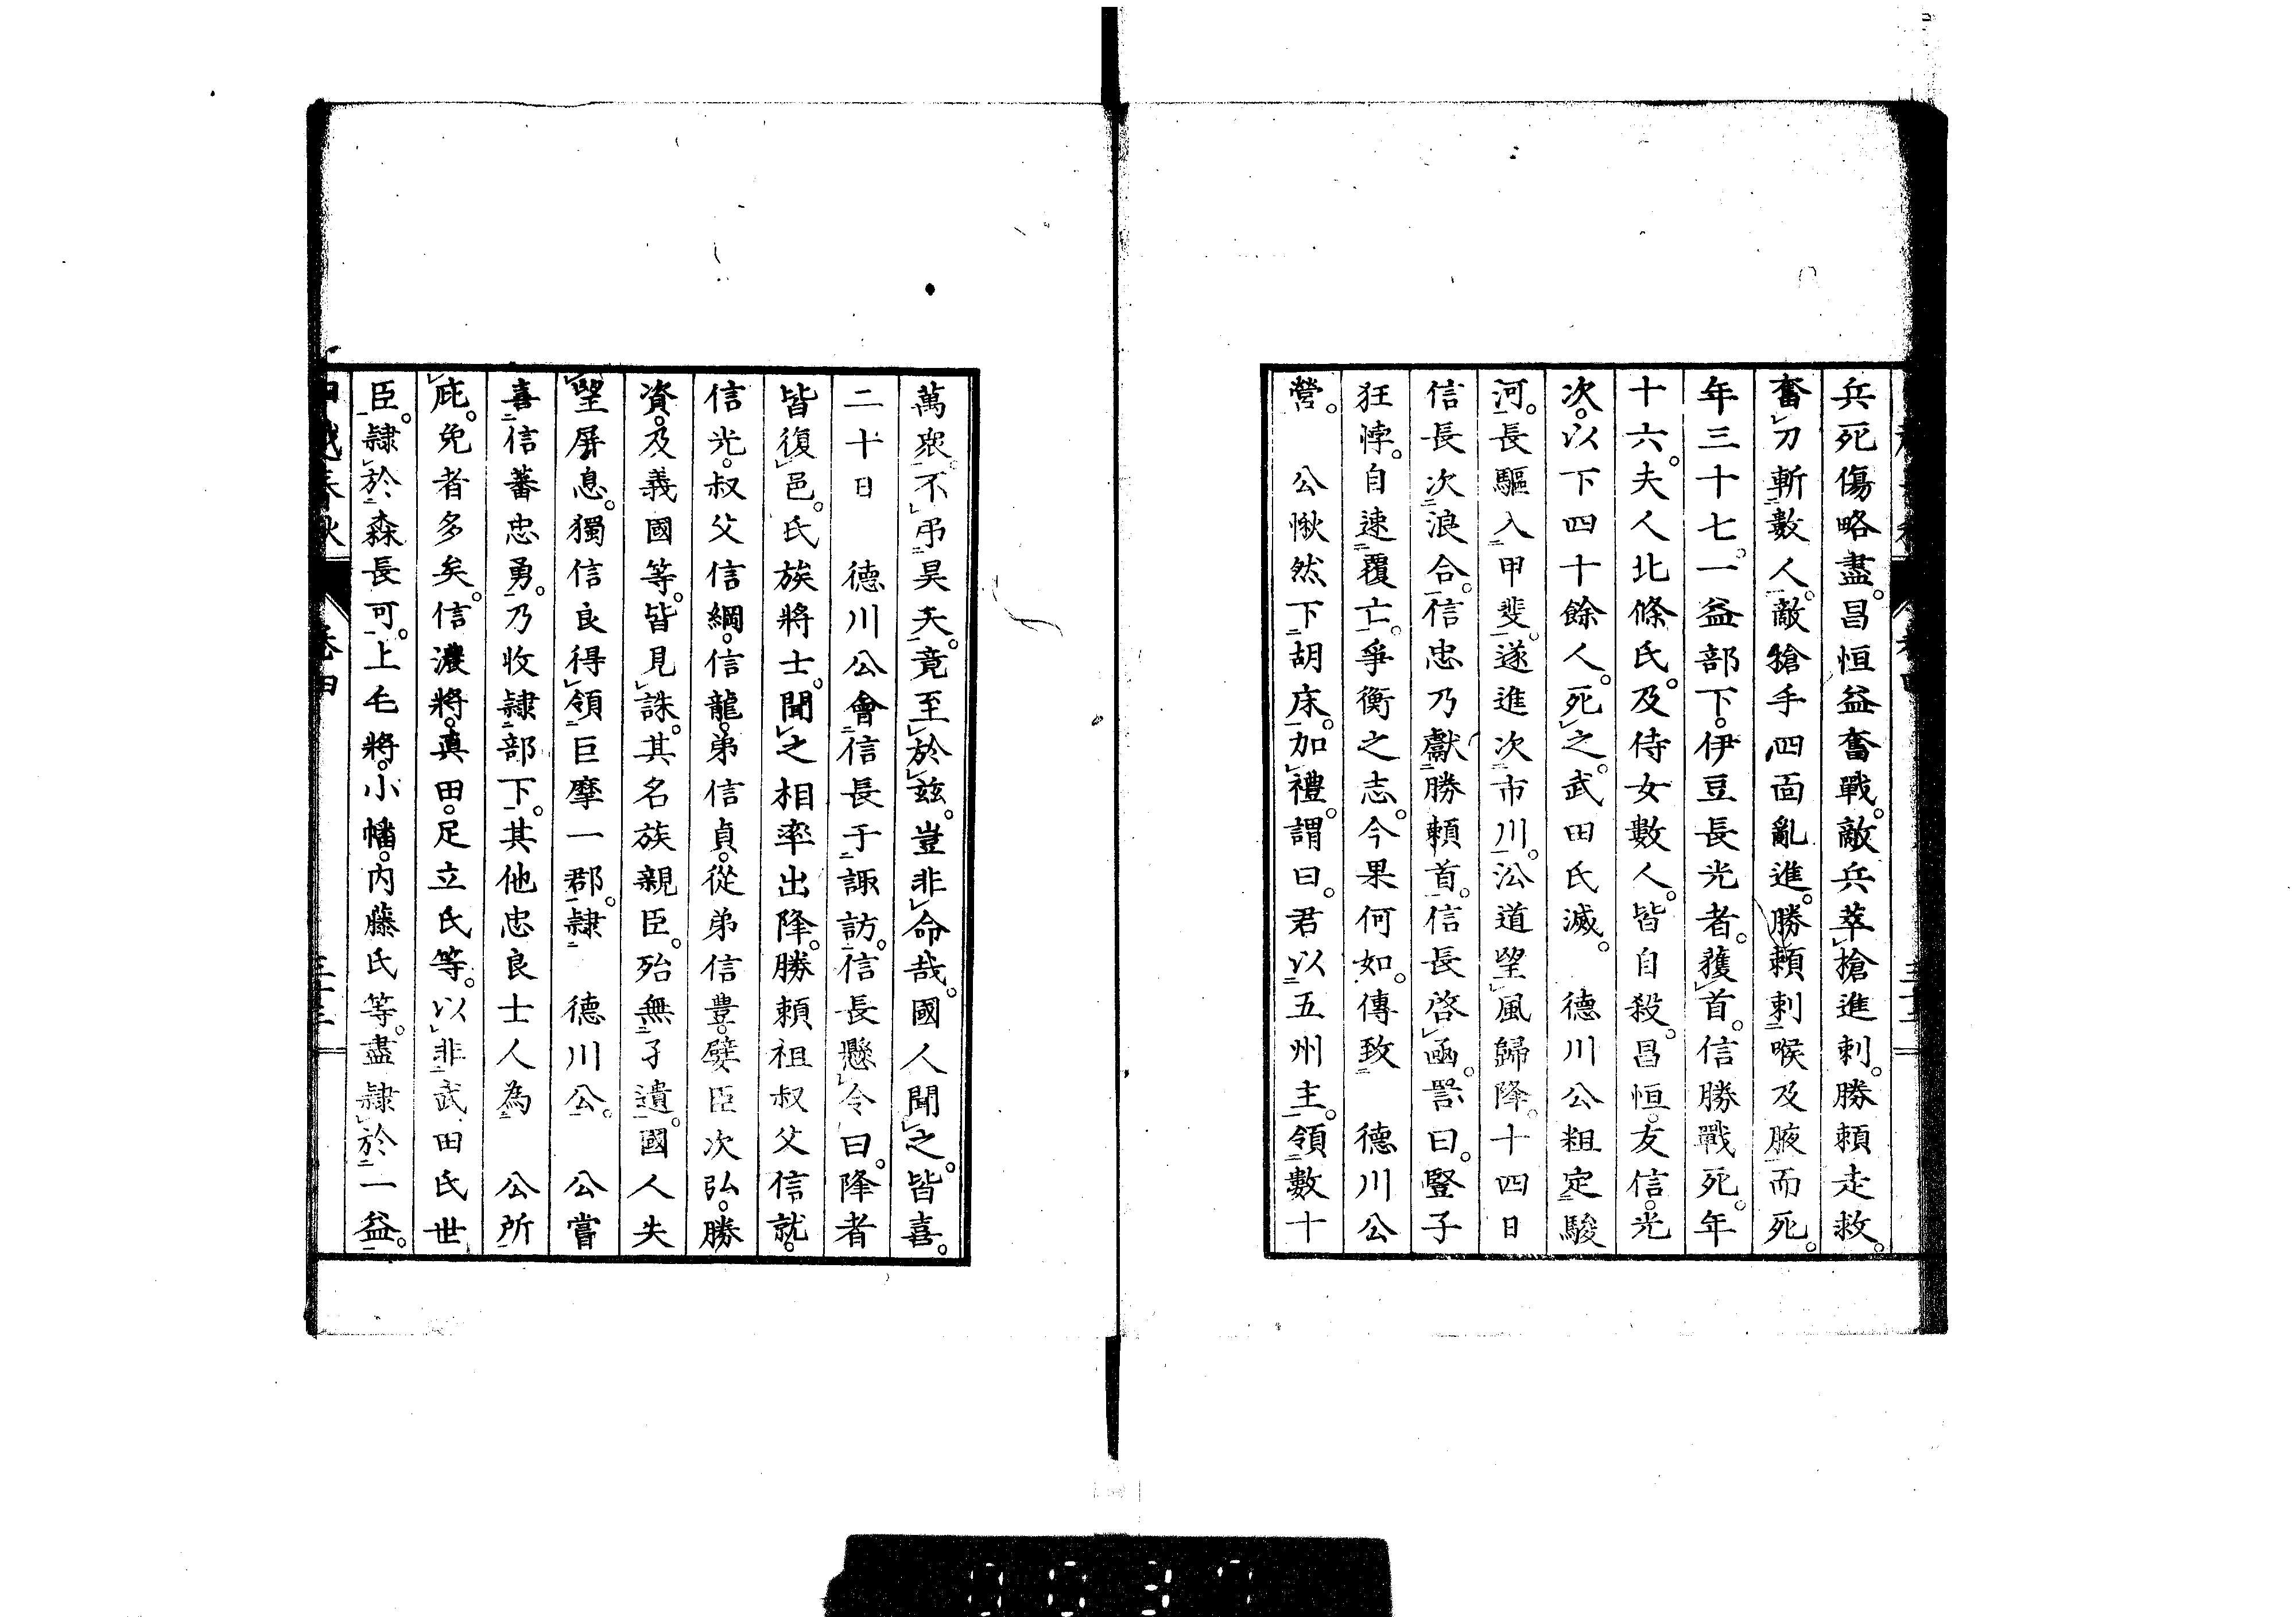 兵死傷略盡。昌恒益奮戰。敵兵萃槍進刺。勝賴走救。
奮刀斬數人。敵槍手四面亂進。勝賴刺喉及腋而死。
年三十七。一益部下。伊豆長光者。獲首。信勝戰死。年
十六。夫人北條氏。及侍女數人。皆自殺。昌恒。友信。光
次。以下四十餘人。死之。武田氏滅。　德川公粗定駿
河。長驅入甲斐。遂進次市川。沿道望風歸降。十四日
信長次浪合。信忠乃獻勝賴首。信長啓函。詈曰。豎子
狂悖。自速覆亡。爭衡之志。今果何如。傳致　德川公
營。　公愀然下胡床。加禮。謂曰。君以五州主。領數十
萬衆。不弔昊天。竟至於茲。豈非命哉。國人聞之。皆喜。
二十日　德川公會信長于諏訪。信長懸令曰。降者
皆復邑。氏族將士。聞之相率出降。勝賴祖叔父信就。
信光。叔父信綱。信龍。弟信貞。從弟信豐。嬖臣次弘。勝
資。及義國等。皆見誅。其名族親臣。殆無孑遺。國人失
望屏息。獨信良得領巨摩一郡。隸　德川公。　公嘗
喜信蕃忠勇。乃收隸部下。其他忠良士人為　公所
庇。免者多矣。信濃將。真田。足立氏等。以非武田氏世
臣。隸於森長可。上毛將。小幡。內藤氏等。盡隸於一益。
越春秋
卷四
三十三